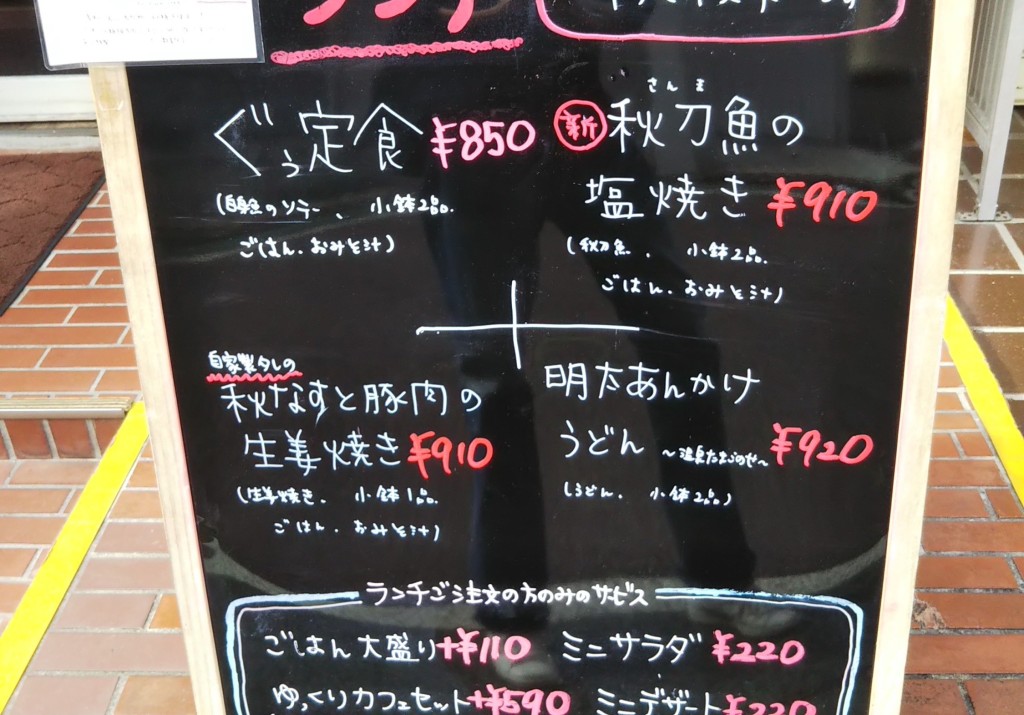 ランチ
ぐぅ定食 ¥850
(白魚のソテー、小鉢2品。
ごはん、おみそ汁)
新 秋刀魚の
さんま
塩焼き ¥910
(秋刀魚、小鉢2品。
ごはん、おみそ汁)
自家製タレの
秋なすと豚肉の
生姜焼き ¥910
(生姜焼き、小鉢1品。
ごはん、おみそ汁)
明太あんかけ
うどん ~温泉たまごのせ~ ¥920
(うどん、小鉢2品)
ランチご注文の方のみのサービス
ごはん大盛り+¥110 ミニサラダ ¥220
ゆっくりカフェセット+¥590 ミニデザート ¥220